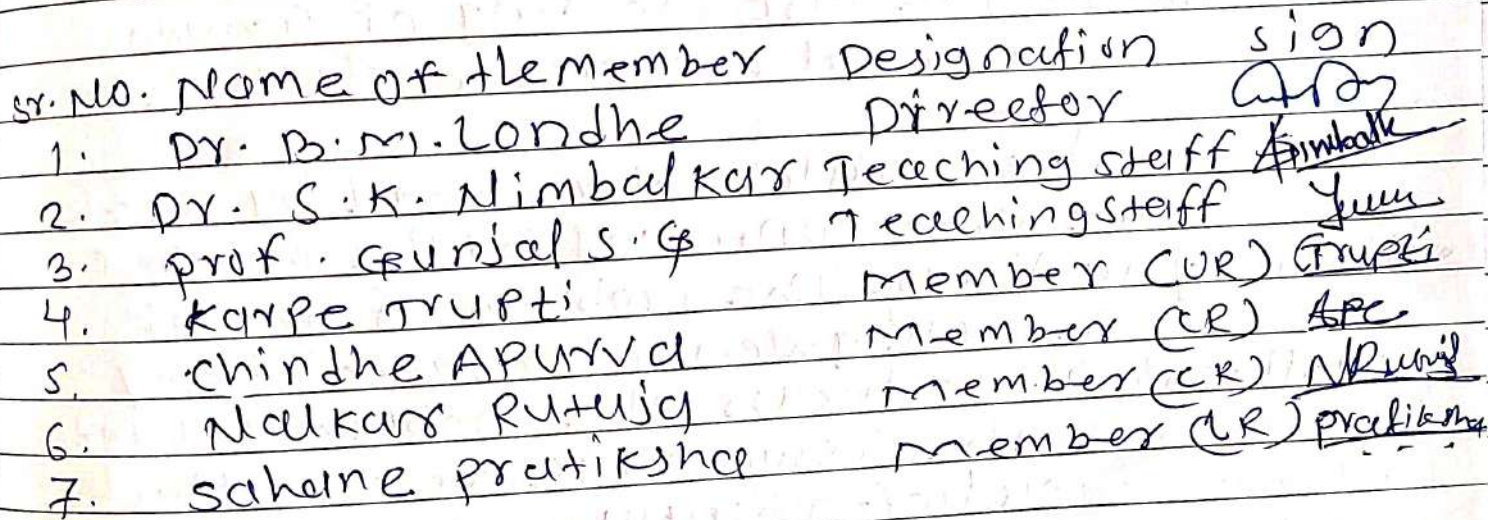 Sr. No. Name of the Member Designation sign
1. Dr. B.M. Londhe Director
2. Dr. S.K. Nimbalkar Teaching staff
3. prof. Gunjal S.G Teaching staff
4. Karpe Trupti Member (UR) Trupti
5. Chindhe Apurva Member (CR) APC
6. Nalkar Rutuja Member (CR)
7. Sahane pratiksha Member (LR) pratiksha